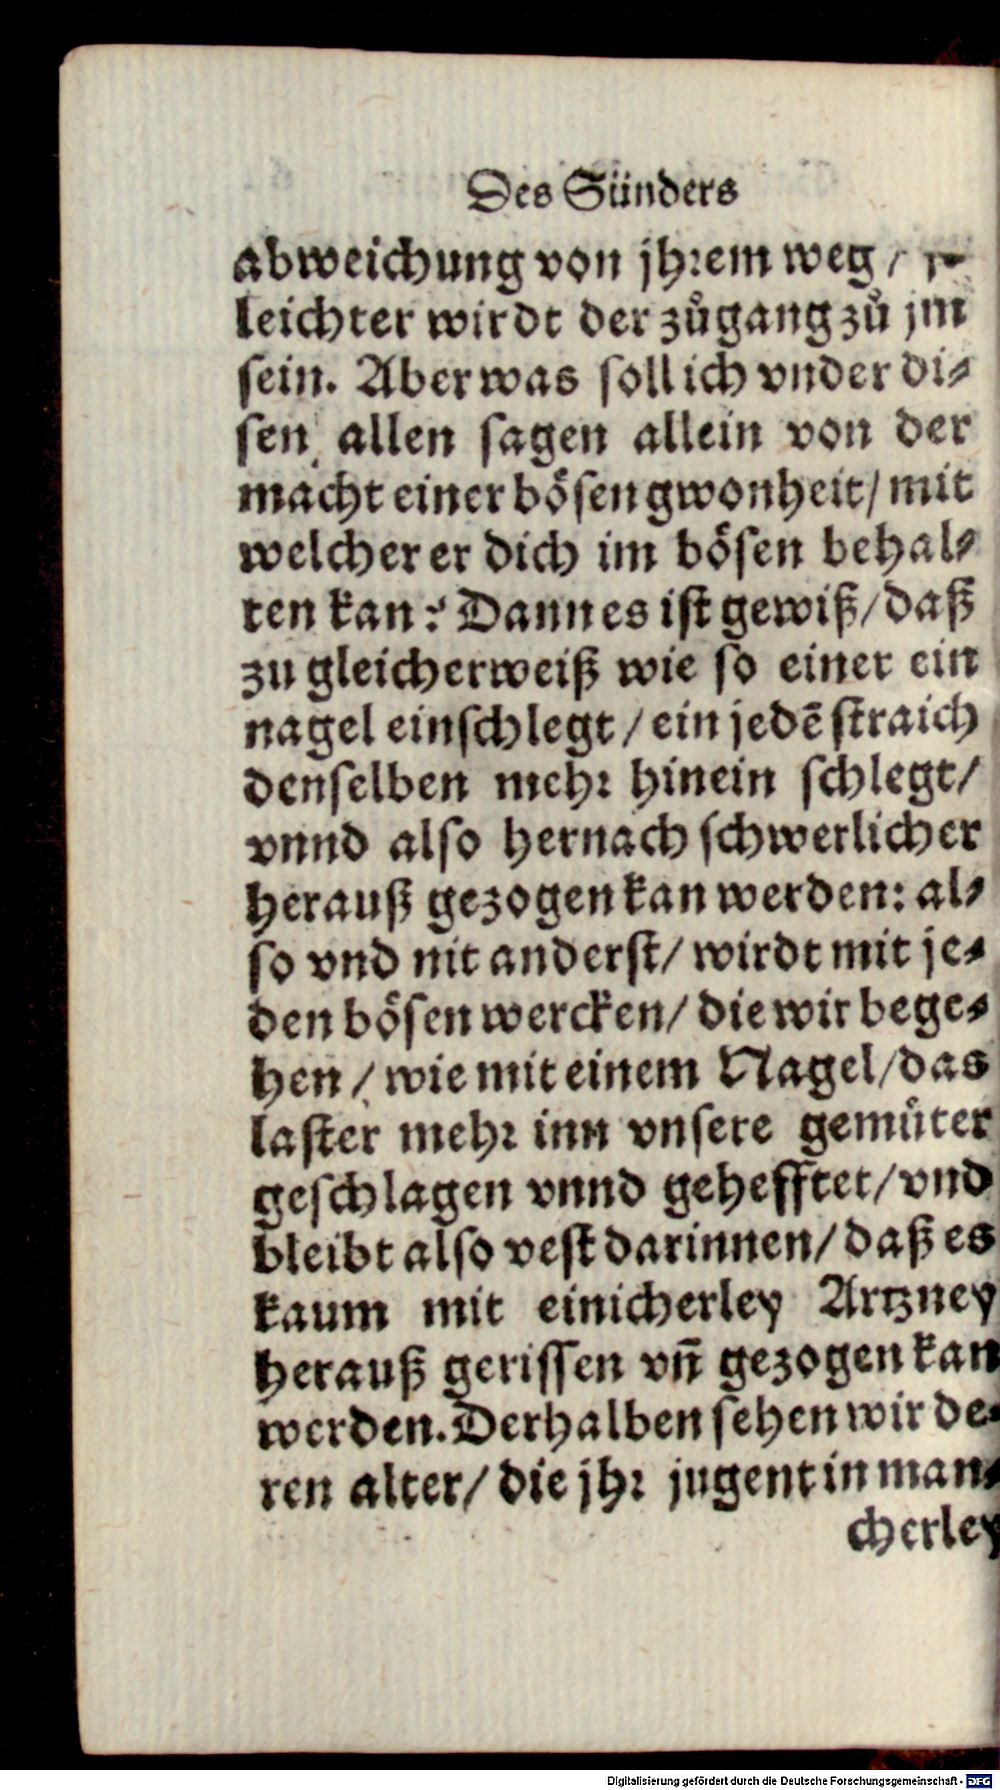 Des Sünders
abweichung von jhrem weg /
leichter wirdt der zůgang zů jm
sein. Aber was soll ich vnder di-
sen allen sagen allein von der
macht einer bösen gwonheit / mit
welcher er dich im bösen behal-
ten kan? Dann es ist gewiß / daß
zu gleicherweiß wie so einer ein
nagel einschlegt / ein jedē straich
denselben mehr hinein schlegt /
vnnd also hernach schwerlicher
herauß gezogen kan werden: al-
so vnd nit anderst / wirdt mit je-
den bösen wercken / die wir bege-
hen / wie mit einem Nagel / das
laster mehr inn vnsere gemüter
geschlagen vnnd gehefftet / vnd
bleibt also vest darinnen / daß es
kaum mit einicherley Artzney
herauß gerissen vñ gezogen kan
werden. Derhalben sehen wir de-
ren alter / die jhr jugent in man-
cherley
Digitalisierung gefördert durch die Deutsche Forschungsgemeinschaft - DFG